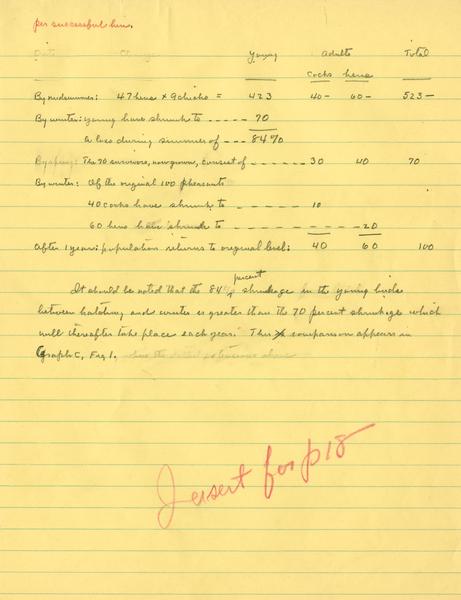 per successful hen.
Date Change Young Adults Total
Cocks hens
By midsummer: 47 hens x 9 chicks = 423 40 - 60 - 523 -
By winter: young have shrunk to ----- 70
a loss during summer of --- 84%
By spring: The 70 survivors, now grown, consist of ------ 30 40 70
By winter: Of the original 100 pheasants
40 cocks have shrunk to ------ 10
60 hens have shrunk to ---------- 20
After 1 year: population returns to original level: 40 60 100
It should be noted that the 84 percent shrinkage in the young birds
between hatching and winter is greater than the 70 percent shrinkage which
will thereafter take place each year. This comparison appears in
Graph C, Fig 1.
Insert for p 18